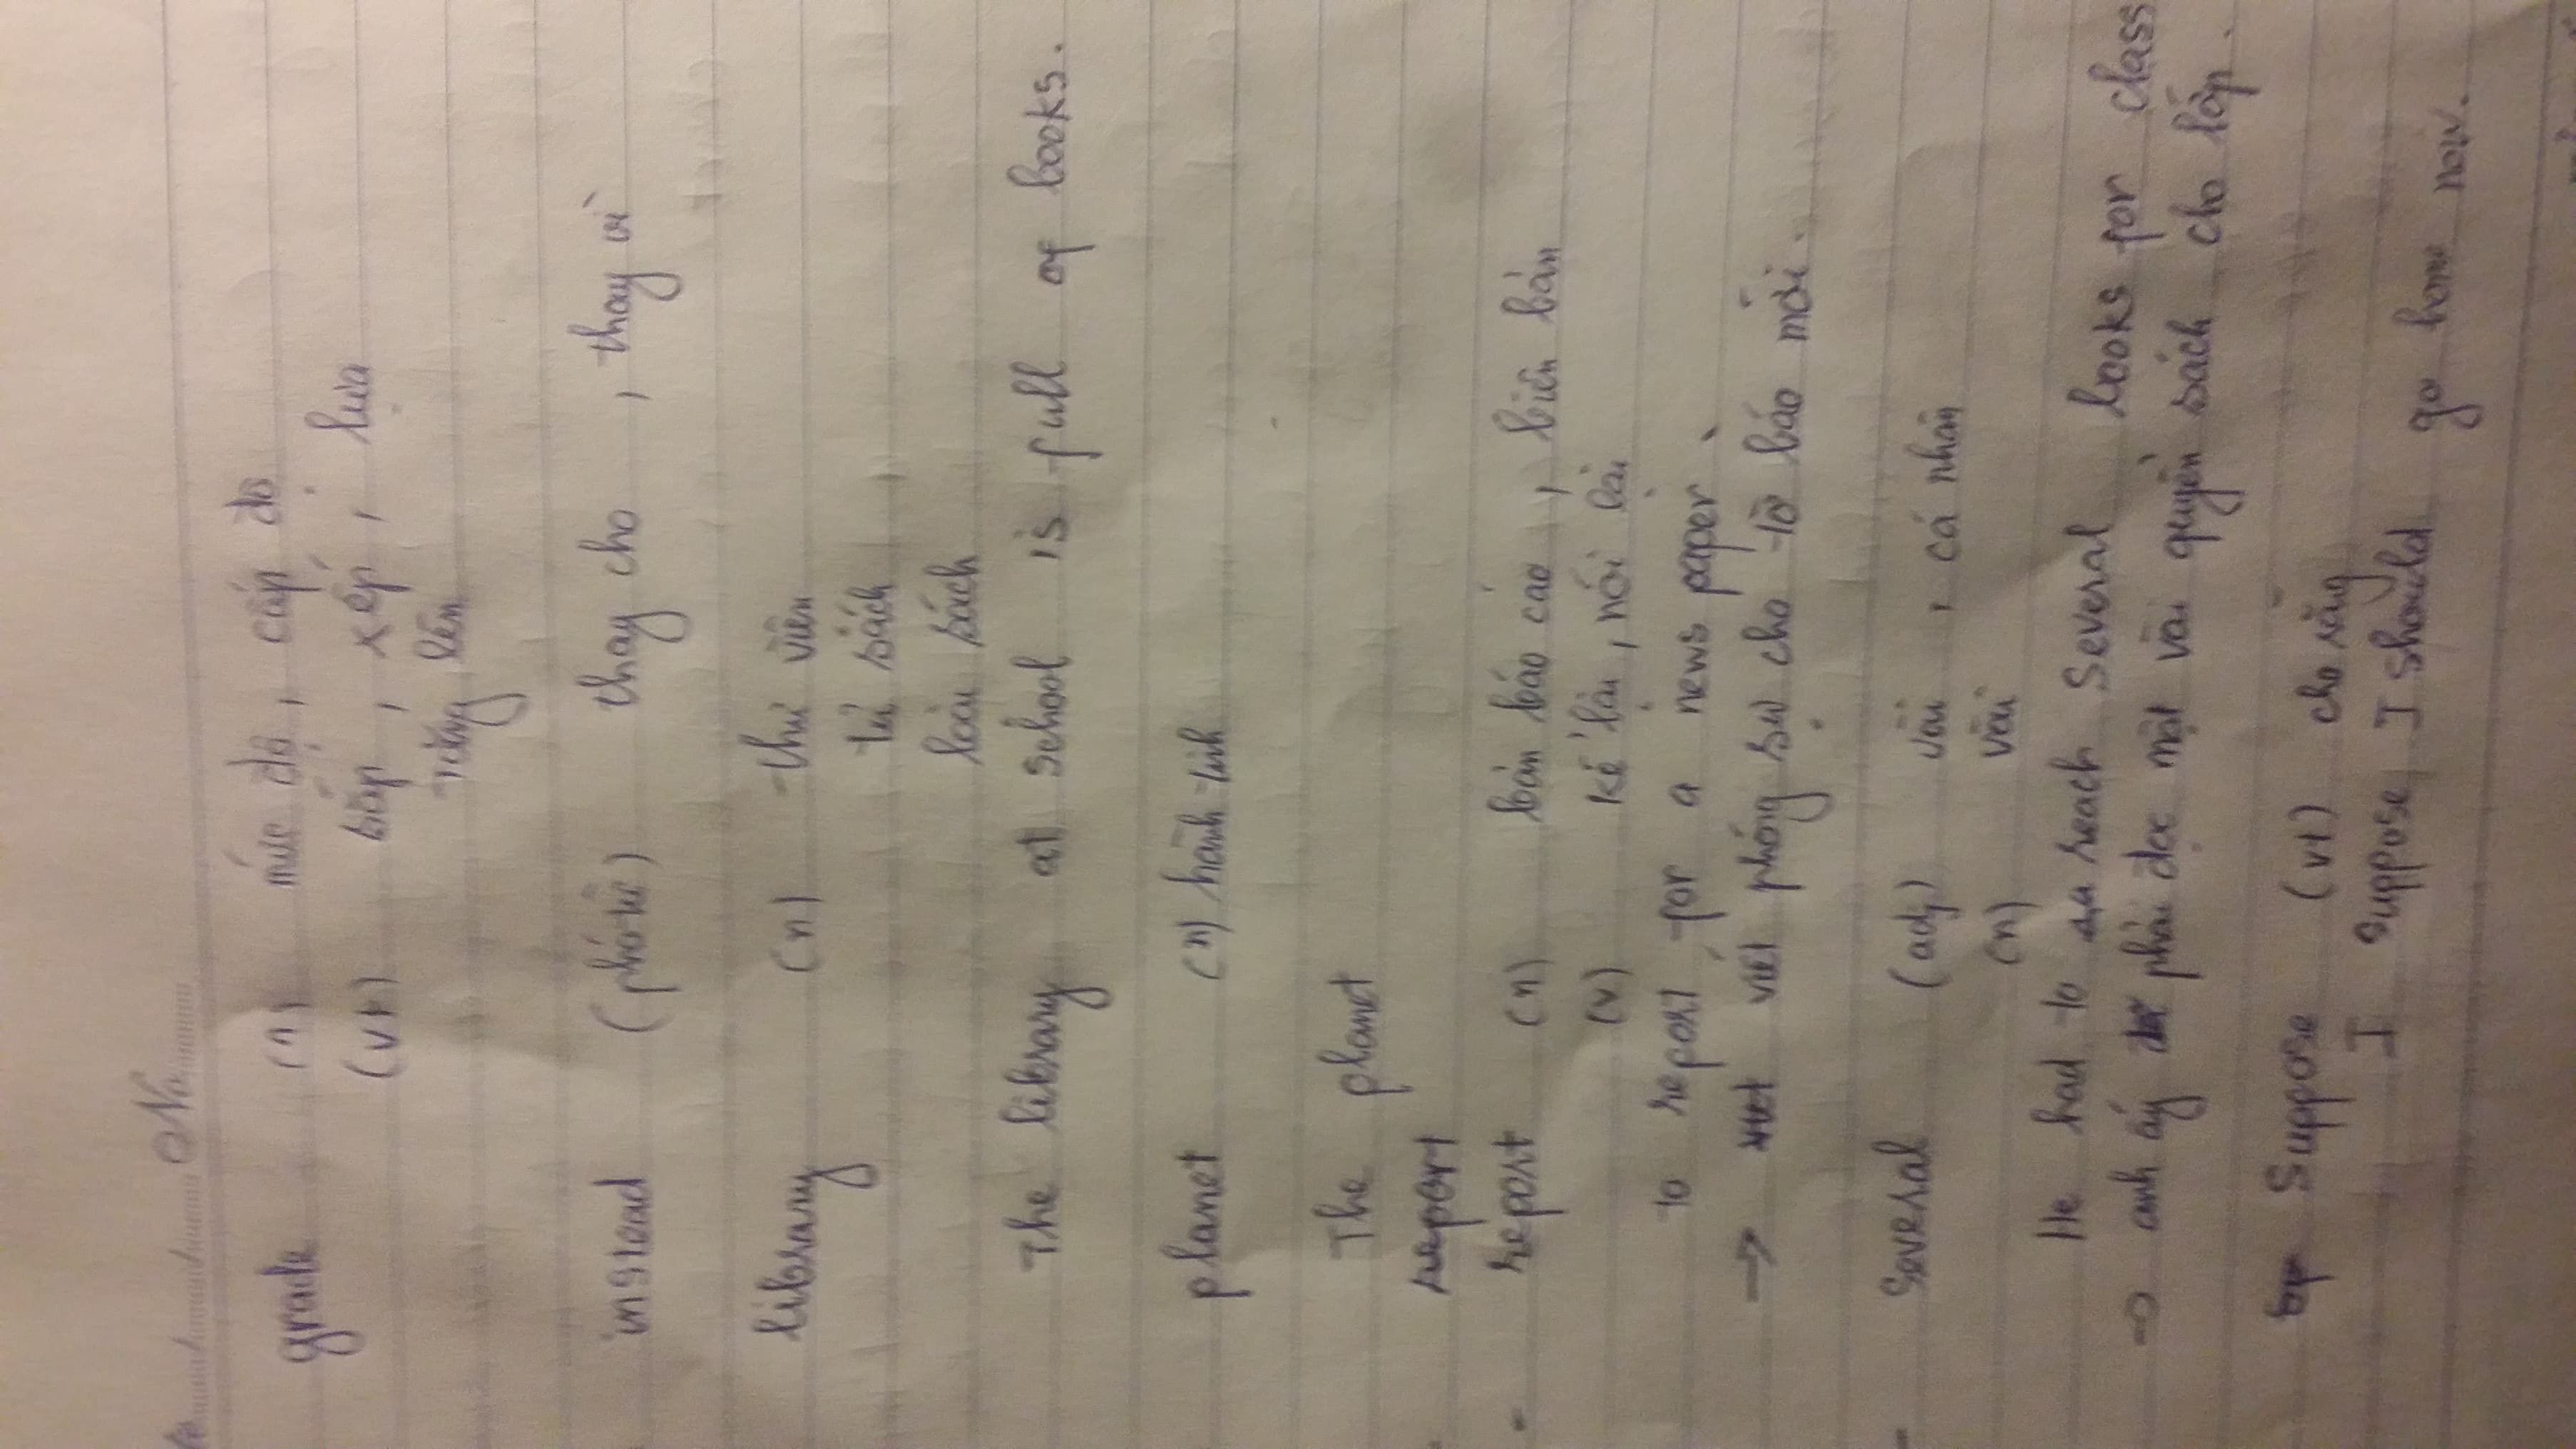 No
grade (n) mức độ, cấp độ
(vt) sắp, xếp, lựa
tăng lên
instead (phó từ) thay cho, thay vì
library (n) thư viện
tủ sách
loại sách
The library at school is full of books.
planet (n) hành tinh
The planet
report
report (n) bản báo cáo, biên bản
(v) kể lại, nói lại
to report for a news paper
→ viết phóng sự cho tờ báo mới.
several (adj) vài, cá nhân
(n) vài
He had to reach several books for class
→ anh ấy phải đọc một vài quyển sách cho lớp.
Suppose (vt) cho rằng
I suppose I should go home now.